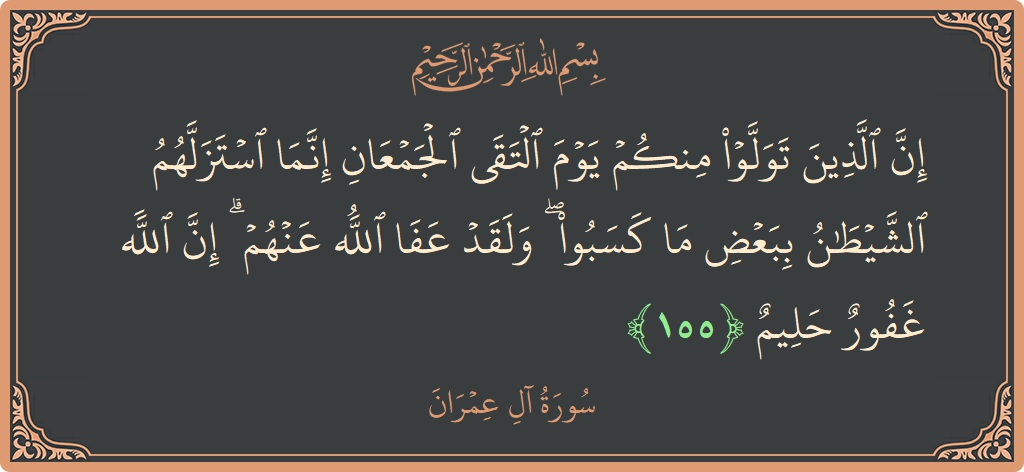 بِسْمِ ٱللَّهِ ٱلرَّحْمَٰنِ ٱلرَّحِيمِ
إِنَّ ٱلَّذِينَ تَوَلَّوْا۟ مِنكُمْ يَوْمَ ٱلْتَقَى ٱلْجَمْعَانِ إِنَّمَا ٱسْتَزَلَّهُمُ
ٱلشَّيْطَٰنُ بِبَعْضِ مَا كَسَبُوا۟ ۖ وَلَقَدْ عَفَا ٱللَّهُ عَنْهُمْ ۗ إِنَّ ٱللَّهَ
غَفُورٌ حَلِيمٌ ﴿١٥٥﴾
سُورَةُ آلِ عِمْرَانَ